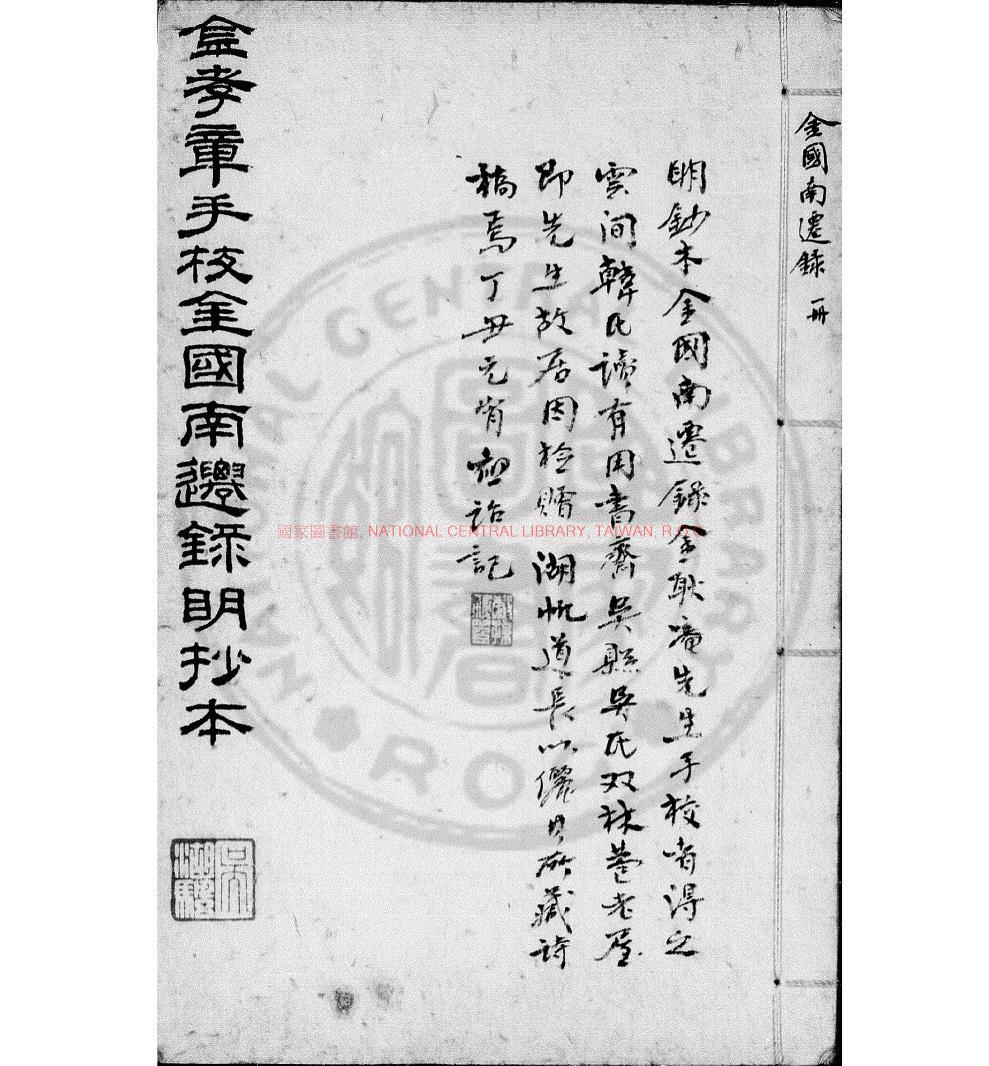 金國南遷錄 一册
明鈔本金國南遷錄金耿庵先生手校者得之
雲間韓氏讀有用書齋吳縣吳氏双林巷老屋
即先生故居因檢贈 湖帆道長以儷其所藏詩
稿焉丁丑元宵 記
金孝章手校金國南遷錄明抄本
國家圖書館, NATIONAL CENTRAL LIBRARY, TAIWAN, R.O.C.
NATIONAL CENTRAL LIBRARY
R O C